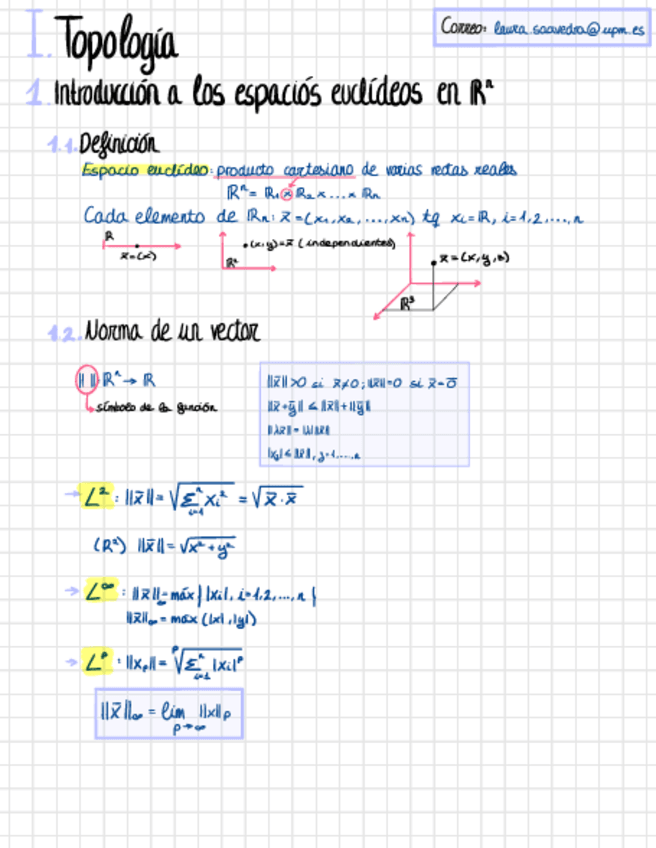 I. Topología
Correo: laura.saavedra@upm.es
1. Introducción a los espaciós euclídeos en ℝⁿ
1.1. Definición
Espacio euclídeo: producto cartesiano de varias rectas reales
ℝⁿ = ℝ₁ x ℝ₂ x ... x ℝn
Cada elemento de ℝn: x̄ = (x₁, x₂, ..., xn) tq xᵢ = ℝ, i = 1, 2, ..., n
ℝ
x̄ = (x)
•(x,y) = x̄ (independientes)
ℝ²
x̄ = (x, y, z)
ℝ³
1.2. Norma de un vector
|| || ℝⁿ → ℝ
símbolo de la función
||x̄|| > 0 si x̄ ≠ 0; ||x̄|| = 0 si x̄ = 0̄
||x̄ + ȳ|| ≤ ||x̄|| + ||ȳ||
||λx̄|| = |λ| ||x̄||
|xⱼ| ≤ ||x̄||, j = 1, ..., n
→ L²: ||x̄|| = √(Σⁿᵢ₌₁ xᵢ²) = √(x̄ · x̄)
(ℝ²) ||x̄|| = √(x² + y²)
→ L^∞: ||x̄||∞ = máx { |xᵢ|, i = 1, 2, ..., n }
||x̄||∞ = máx (|x|, |y|)
→ Lᵖ: ||xₚ|| = ᵖ√(Σⁿᵢ₌₁ |xᵢ|ᵖ)
||x̄||∞ = lím ||x||ₚ
p→∞